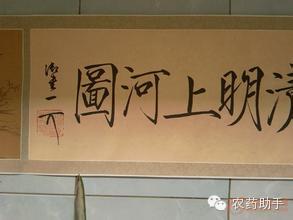 清明上河圖
御書
农药助手